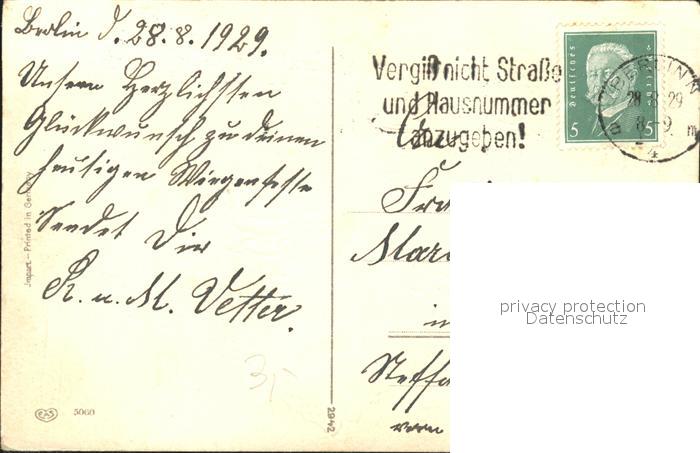 Berlin d. 28.8.1929.
Unsern Herzlichsten
Glückwunsch zu deinem
heutigen Wiegenfeste
Sendet Dir
R. u. M. Vetter.
Import - Printed in Germany
EAS 5060
3,-
2942
Vergiß nicht Straße
und Hausnummer
anzugeben!
Deutsches
5 5
BERLIN
28.8.29
8-9
4
in
privacy protection
Datenschutz